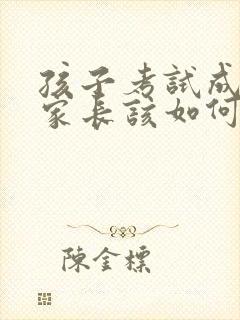 孩子考試成
家長該如何
陳金標